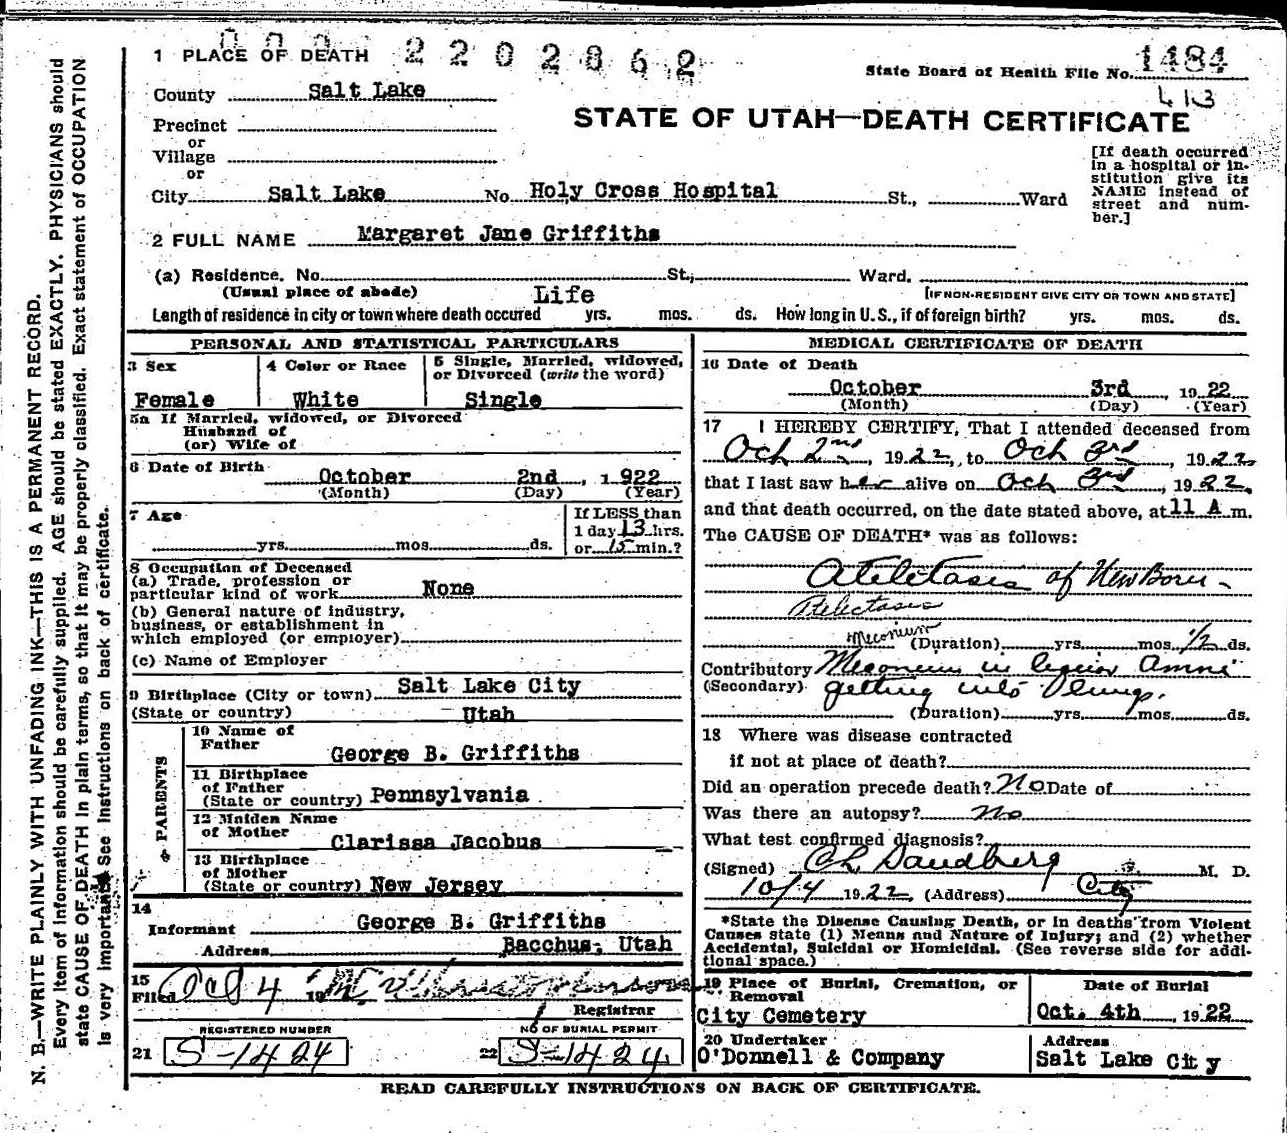 1 PLACE OF DEATH 2202862
State Board of Health File No. 1484
County Salt Lake
413
STATE OF UTAH—DEATH CERTIFICATE
Precinct
or
Village
or
City Salt Lake No. Holy Cross Hospital St., Ward
[If death occurred
in a hospital or in-
stitution give its
NAME instead of
street and num-
ber.]
2 FULL NAME Margaret Jane Griffiths
(a) Residence. No. St., Ward.
(Usual place of abode) Life [IF NON-RESIDENT GIVE CITY OR TOWN AND STATE]
Length of residence in city or town where death occured yrs. mos. ds. How long in U.S., if of foreign birth? yrs. mos. ds.
PERSONAL AND STATISTICAL PARTICULARS
3 Sex 4 Color or Race 5 Single, Married, widowed,
or Divorced (write the word)
Female White Single
5a If Married, widowed, or Divorced
Husband of
(or) Wife of
6 Date of Birth
October 2nd, 1922
(Month) (Day) (Year)
7 Age If LESS than
1 day 13 hrs.
yrs. mos. ds. or 15 min.?
8 Occupation of Deceased
(a) Trade, profession or
particular kind of work None
(b) General nature of industry,
business, or establishment in
which employed (or employer)
(c) Name of Employer
9 Birthplace (City or town) Salt Lake City
(State or country) Utah
PARENTS
10 Name of
Father George B. Griffiths
11 Birthplace
of Father
(State or country) Pennsylvania
12 Maiden Name
of Mother Clarissa Jacobus
13 Birthplace
of Mother
(State or country) New Jersey
14
Informant George B. Griffiths
Address Bacchus, Utah
15
Filed Oct 4 19
Registrar
REGISTERED NUMBER NO OF BURIAL PERMIT
21 S-1424 22 S-1424
MEDICAL CERTIFICATE OF DEATH
16 Date of Death
October 3rd, 1922
(Month) (Day) (Year)
17 I HEREBY CERTIFY, That I attended deceased from
Och 2nd, 1922, to Och 3rd, 1922
that I last saw her alive on Och 3rd, 1922,
and that death occurred, on the date stated above, at 11 A m.
The CAUSE OF DEATH* was as follows:
Atelitasis of New Born -
Atelectasis
Meconium (Duration) yrs. mos. 1/2 ds.
Contributory Meconium in liquior amni
(Secondary) getting into lungs.
(Duration) yrs. mos. ds.
18 Where was disease contracted
if not at place of death?
Did an operation precede death? No Date of
Was there an autopsy? no
What test confirmed diagnosis?
(Signed) C L Sandberg M. D.
10/4 1922 (Address) City
*State the Disease Causing Death, or in deaths from Violent
Causes state (1) Means and Nature of Injury; and (2) whether
Accidental, Suicidal or Homicidal. (See reverse side for addi-
tional space.)
19 Place of Burial, Cremation, or
Removal
City Cemetery
Date of Burial
Oct. 4th 1922
20 Undertaker
O'Donnell & Company
Address
Salt Lake City
READ CAREFULLY INSTRUCTIONS ON BACK OF CERTIFICATE.
N. B.—WRITE PLAINLY WITH UNFADING INK—THIS IS A PERMANENT RECORD.
Every item of information should be carefully supplied. AGE should be stated EXACTLY. PHYSICIANS should
state CAUSE OF DEATH in plain terms, so that it may be properly classified. Exact statement of OCCUPATION
is very important. See instructions on back of certificate.